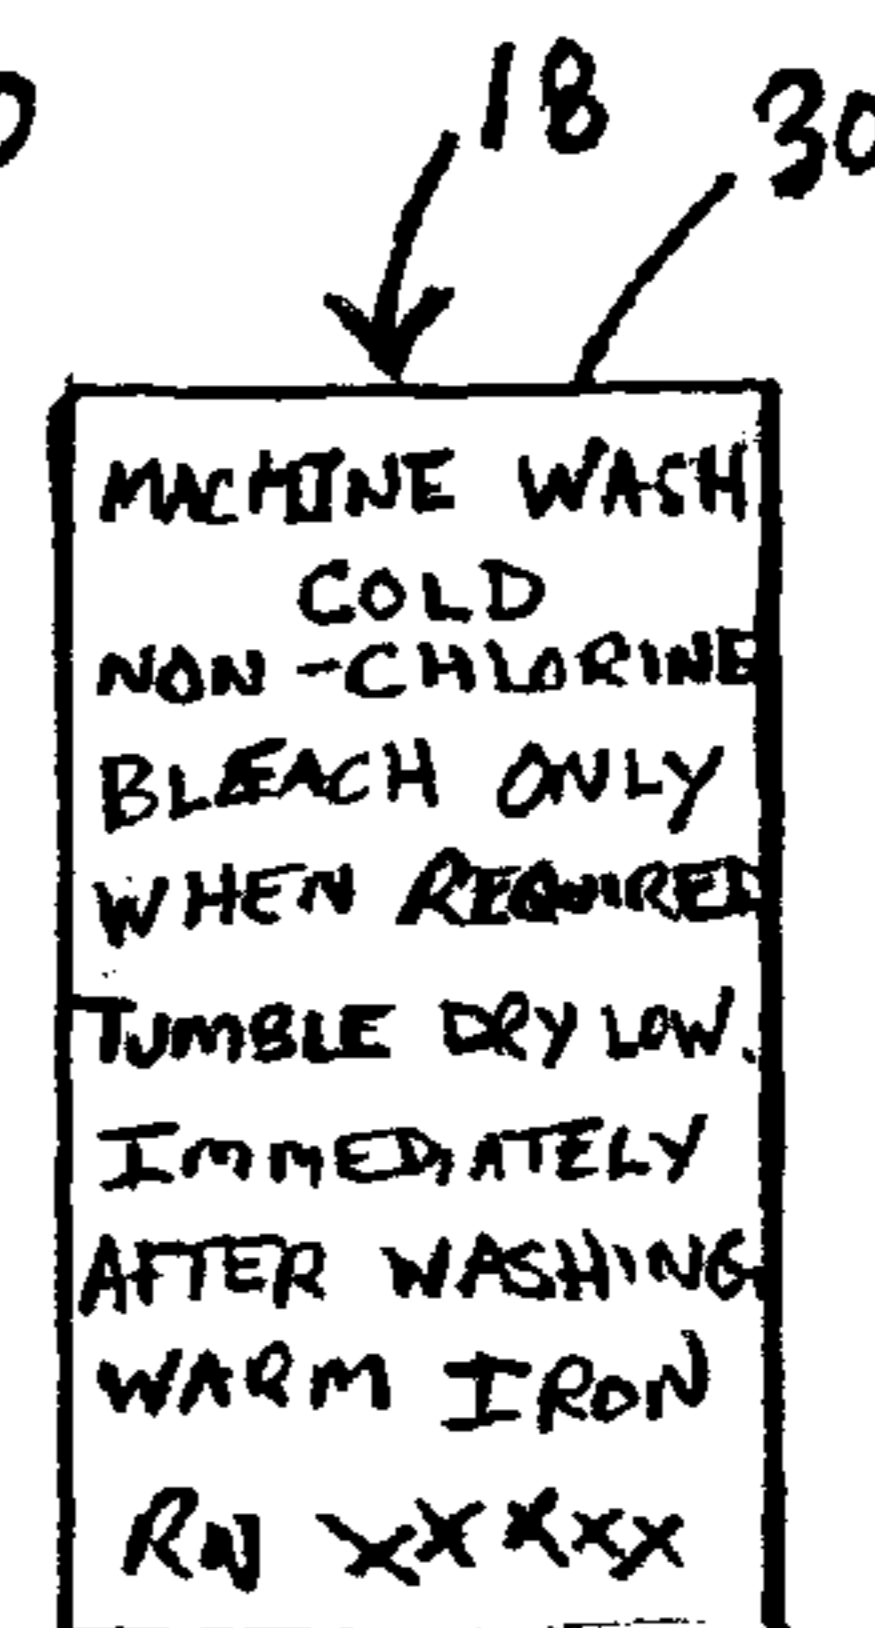 18 30
MACHINE WASH
COLD
NON-CHLORINE
BLEACH ONLY
WHEN REQUIRED
TUMBLE DRY LOW.
IMMEDIATELY
AFTER WASHING
WARM IRON
RN XXXXX